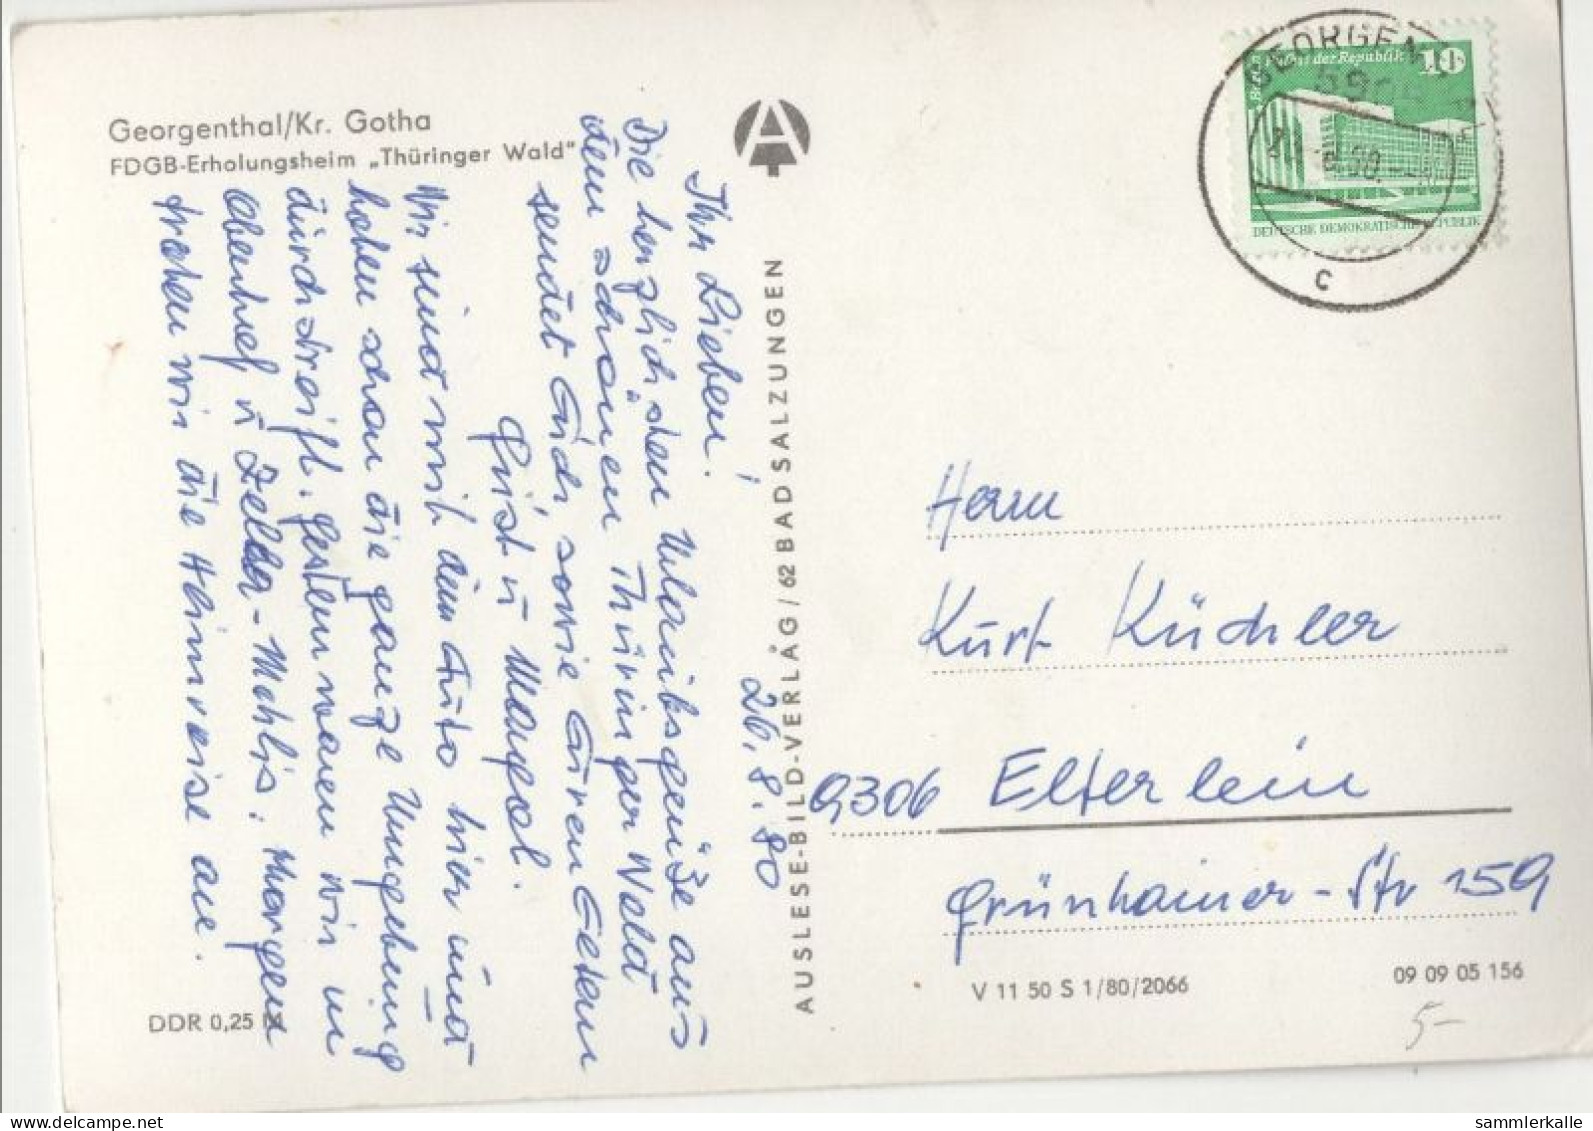 Georgenthal/Kr. Gotha
FDGB-Erholungsheim „Thüringer Wald"
26.8.80
Ihr Lieben!
Die herzlichsten Urlaubsgrüße aus
dem schönen Thüringer Wald
sendet Euch, sowie Euren Eltern
Christ u. Manfred.
Wir sind mit dem Auto hier und
haben schon die ganze Umgebung
durchstreift. Gestern waren wir in
Oberhof u. Zella-Mehlis. Morgen
treten wir die Heimreise an.
DDR 0,25 M
AUSLESE-BILD-VERLAG / 62 BAD SALZUNGEN
GEORGENTHAL
Palast der Republik
10
DEUTSCHE DEMOKRATISCHE REPUBLIK
c
Herrn
Kurt Küchler
9306 Elterlein
Grünhainer-Str 159
V 11 50 S 1/80/2066
09 09 05 156
5-
www.delcampe.net
sammlerkalle